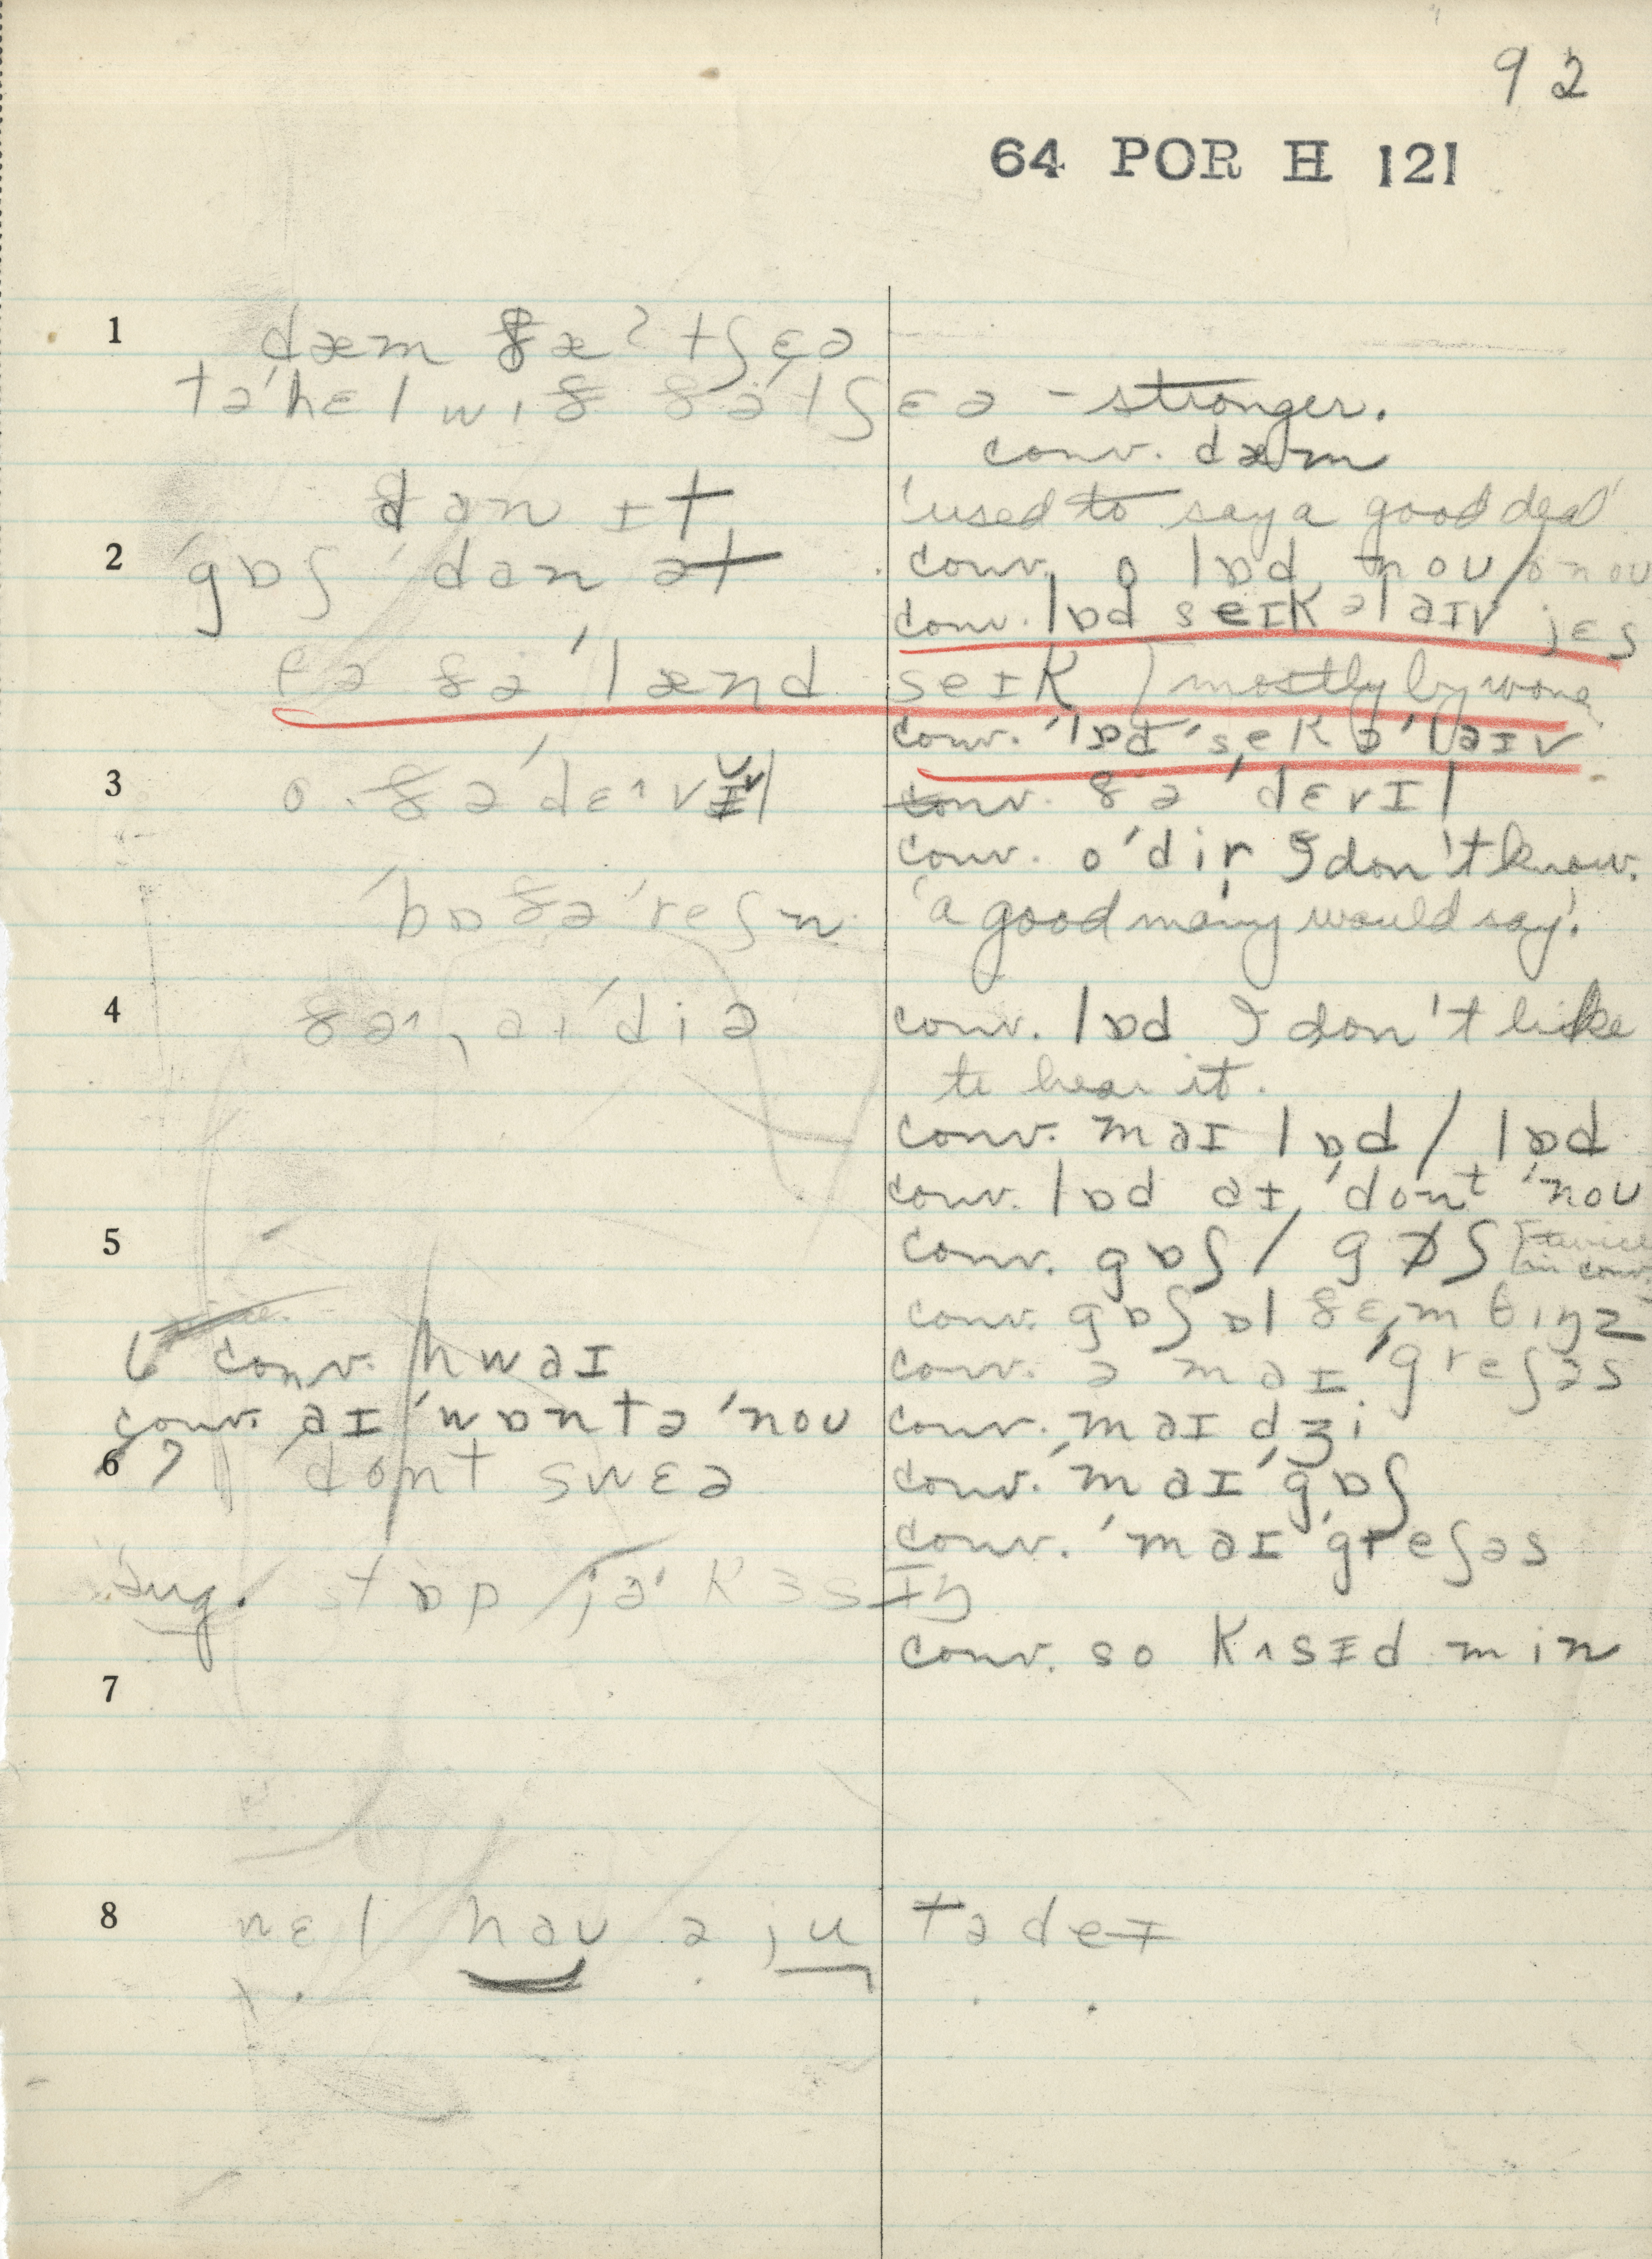 92
64 POR H 121
1 dæm ðæˀ tʃɛə
tə'hɛl wɪð ðə'tʃɛə - stronger.
conv. dæm
dən ɪt 'used to say a good deal'
2 'gɒʃ 'dən ət conv. o lɒd, nou / o nou
conv. lɒd seɪk əlaɪv jɛs
fə ðə 'lænd seɪk mostly by
conv. 'lɒd 'sek ə'laɪv
3 o. ðə'dɛ^vɪl conv. ðə 'dɛvɪl
conv. o'dir I don't know.
'bɒðə'reʃn 'a good many would say'.
4 ðə^, aɪ'diə conv. lɒd I don't like
to hear it.
conv. maɪ lɒd / lɒd
conv. lɒd aɪ 'dont 'nou
5 conv. gɒʃ / gɒʃ [twice in conv.
conv. gɒʃ ɒl ðɛm θɪŋz
6 conv. hwaɪ conv. ə maɪ 'greʃəs
conv. aɪ 'wɒntə 'nou conv. maɪ dʒi
6 7 dont swɛə conv. 'maɪ 'gɒʃ
conv. 'maɪ 'greʃəs
Sug. stɒp jə' kɜsɪŋ
conv. so kʌsɪd min
7
8 wɛl haʊ ə ju tədeɪ